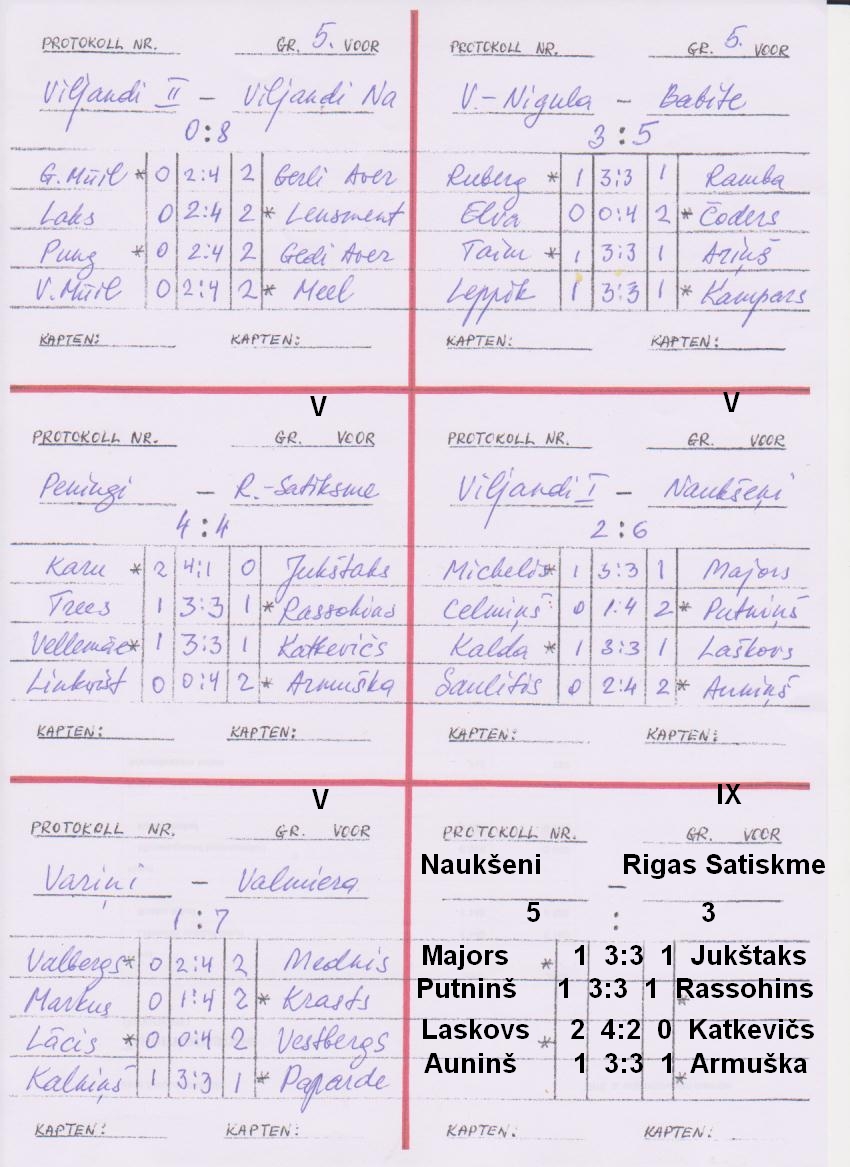 PROTOKOLL NR. GR. 5. VOOR
Viljandi II - Viljandi Na
0:8
G. Müil * 0 2:4 2 Gerli Aver
Laks 0 2:4 2 * Lensment
Pung * 0 2:4 2 Gedi Aver
V. Müil 0 2:4 2 * Meel
KAPTEN: KAPTEN:
PROTOKOLL NR. GR. 5. VOOR
V.-Nigula - Babite
3:5
Ruberg * 1 3:3 1 Ramba
Elva 0 0:4 2 * Čoders
Taim * 1 3:3 1 Ariņš
Leppik 1 3:3 1 * Kampars
KAPTEN: KAPTEN:
V
PROTOKOLL NR. GR. VOOR
Peningi - R.-Satiksme
4:4
Karu * 2 4:1 0 Jukštaks
Trees 1 3:3 1 * Rassohins
Vellemäe * 1 3:3 1 Katkevičs
Linkvist 0 0:4 2 * Armuška
KAPTEN: KAPTEN:
V
PROTOKOLL NR. GR. VOOR
Viljandi I - Naukšeņi
2:6
Michelis * 1 3:3 1 Majors
Celmiņš 0 1:4 2 * Putniņš
Kalda * 1 3:3 1 Laškovs
Saulitis 0 2:4 2 * Auniņš
KAPTEN: KAPTEN:
V
PROTOKOLL NR. GR. VOOR
Variņi - Valmiera
1:7
Valbergs * 0 2:4 2 Mednis
Markus 0 1:4 2 * Krasts
Lācis * 0 0:4 2 Vestbergs
Kalniņš 1 3:3 1 * Paparde
KAPTEN: KAPTEN:
IX
PROTOKOLL NR. GR. VOOR
Naukšeni - Rigas Satiskme
5 : 3
Majors * 1 3:3 1 Jukštaks
Putninš 1 3:3 1 * Rassohins
Laskovs * 2 4:2 0 Katkevičs
Auninš 1 3:3 1 * Armuška
KAPTEN: KAPTEN: